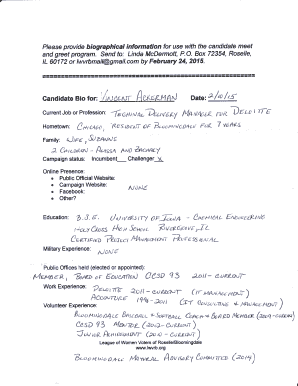 Please provide biographical information for use with the candidate meet
and greet program. Send to: Linda McDermott, P.O. Box 72354, Roselle,
IL 60172 or lwvrbmail@gmail.com by February 24, 2015.
Candidate Bio for: VINCENT ACKERMAN Date: 2/10/15
Current Job or Profession: TERMINAL DELIVERY MANAGER FOR DELOITTE
Hometown: CHICAGO, RESIDENT OF BLOOMINGDALE FOR 7 YEARS
Family: WIFE, SUZANNE
2 CHILDREN - ALYSSA AND ZACHARY
Campaign status: Incumbent___ Challenger X
Online Presence:
• Public Official Website:
• Campaign Website:
• Facebook: NONE
• Other?
Education: B.S.E. UNIVERSITY OF IOWA - CHEMICAL ENGINEERING
HOLY CROSS HIGH SCHOOL RIVER GROVE, IL
CERTIFIED PROJECT MANAGEMENT PROFESSIONAL
Military Experience: NONE
Public Offices held (elected or appointed):
MEMBER, BOARD OF EDUCATION CCSD 93 2011-CURRENT
Work Experience: DELOITTE 2011-CURRENT (IT MANAGEMENT)
ACCENTURE 1996-2011 (IT CONSULTING & MANAGEMENT)
Volunteer Experience:
BLOOMINGDALE BASEBALL & SOFTBALL COACH & BOARD MEMBER (2009-CURRENT)
CCSD 93 MENTOR (2012-CURRENT)
JUNIOR ACHIEVEMENT (2010-CURRENT)
League of Women Voters of Roselle/Bloomingdale
www.lwvrb.org
BLOOMINGDALE MAYORAL ADVISORY COMMITTEE (2014)